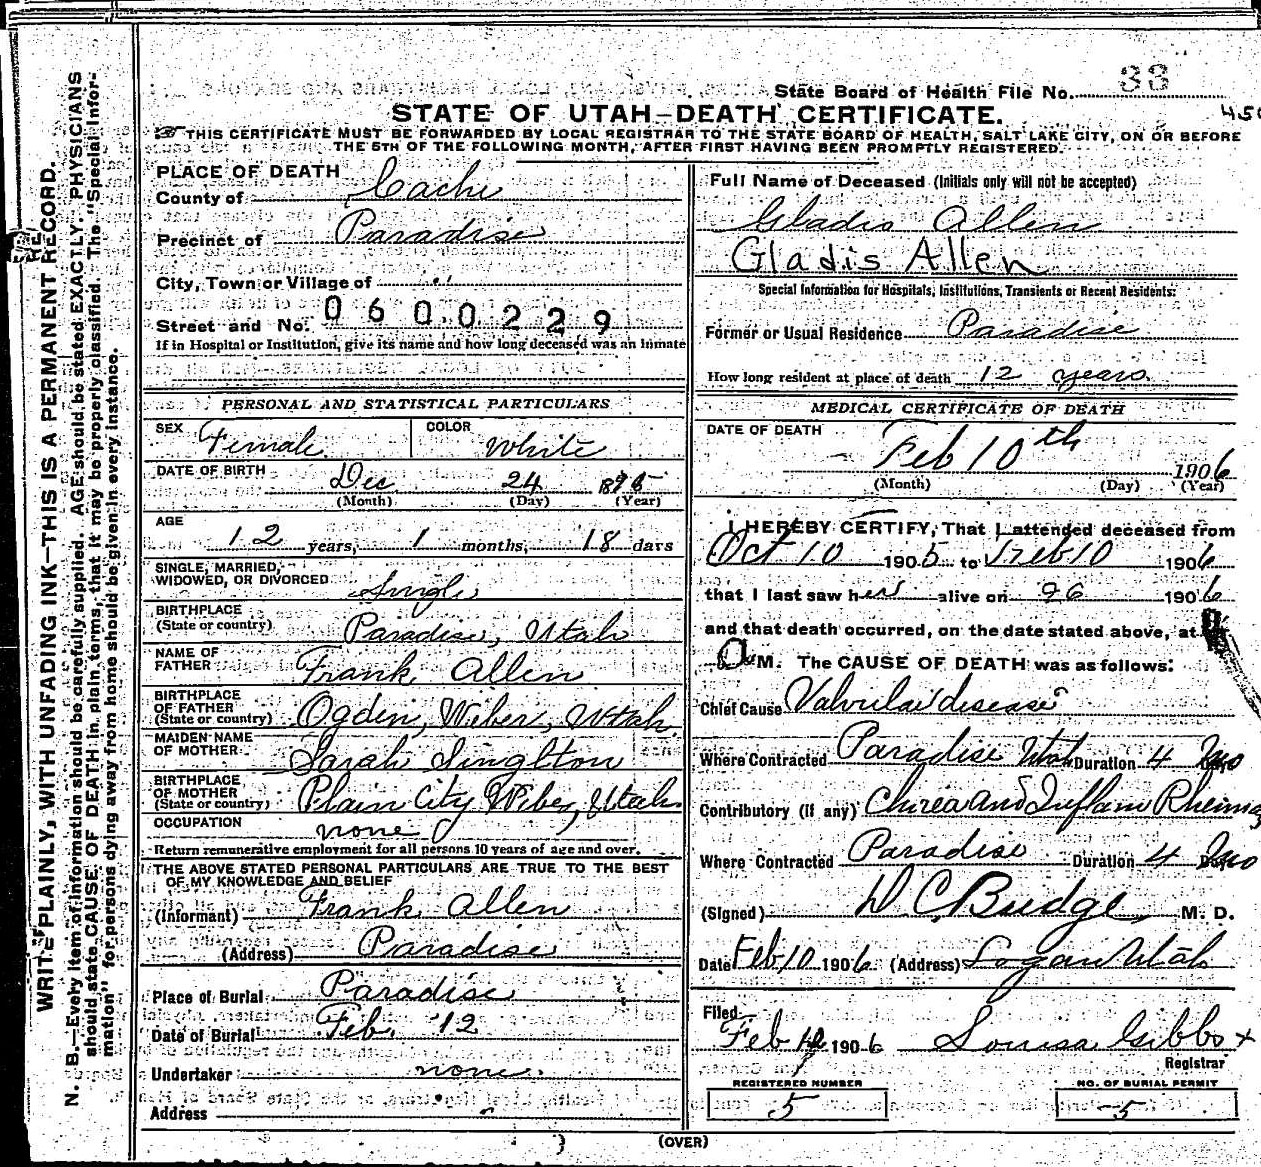 State Board of Health File No. 33
STATE OF UTAH—DEATH CERTIFICATE.
450
THIS CERTIFICATE MUST BE FORWARDED BY LOCAL REGISTRAR TO THE STATE BOARD OF HEALTH, SALT LAKE CITY, ON OR BEFORE
THE 5TH OF THE FOLLOWING MONTH, AFTER FIRST HAVING BEEN PROMPTLY REGISTERED.
WRITE PLAINLY, WITH UNFADING INK—THIS IS A PERMANENT RECORD.
N. B.—Every item of information should be carefully supplied. AGE should be stated EXACTLY. PHYSICIANS
should state CAUSE OF DEATH in plain terms, that it may be properly classified. The "Special Infor-
mation" for persons dying away from home should be given in every instance.
PLACE OF DEATH
County of Cache
Precinct of Paradise
City, Town or Village of "
Street and No. 0600229
If in Hospital or Institution, give its name and how long deceased was an inmate
PERSONAL AND STATISTICAL PARTICULARS
SEX Female COLOR White
DATE OF BIRTH Dec 24
(Month) (Day) (Year)
AGE
12 years, 1 months, 18 days
SINGLE, MARRIED,
WIDOWED, OR DIVORCED Single
BIRTHPLACE
(State or country) Paradise, Utah
NAME OF
FATHER Frank Allen
BIRTHPLACE
OF FATHER
(State or country) Ogden, Weber, Utah
MAIDEN NAME
OF MOTHER Sarah Singlton
BIRTHPLACE
OF MOTHER
(State or country) Plain City Weber, Utah
OCCUPATION none
Return remunerative employment for all persons 10 years of age and over.
THE ABOVE STATED PERSONAL PARTICULARS ARE TRUE TO THE BEST
OF MY KNOWLEDGE AND BELIEF
(Informant) Frank Allen
(Address) Paradise
Place of Burial Paradise
Date of Burial Feb. 12
Undertaker none.
Address
Full Name of Deceased (Initials only will not be accepted)
Gladis Allen
Gladis Allen
Special Information for Hospitals, Institutions, Transients or Recent Residents:
Former or Usual Residence Paradise
How long resident at place of death 12 years.
MEDICAL CERTIFICATE OF DEATH
DATE OF DEATH
Feb 10th 1906
(Month) (Day) (Year)
I HEREBY CERTIFY, That I attended deceased from
Oct 10 1905 to Feb 10 1906
that I last saw her alive on 1906
and that death occurred, on the date stated above, at
a M. The CAUSE OF DEATH was as follows:
Chief Cause Valvular disease
Where Contracted Paradise Utah Duration 4 Mo
Contributory (if any) Chirea and Inflam Rheima
Where Contracted Paradise Duration 4 Mo
(Signed) D C. Budge M. D.
Date Feb 10 1906 (Address) Logan Utah
Filed
Feb 1906 Louisa Gibbs +
Registrar
REGISTERED NUMBER
5
NO. OF BURIAL PERMIT
5
(OVER)